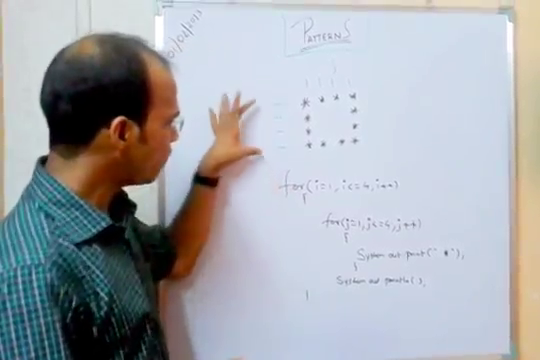 01/02/2013
PATTERNS
* * * *
* *
* *
* * * *
for(i=1, i<=4, i++)
{
for(j=1, j<=4, j++)
{
System.out.print(" * ");
}
System.out.println( );
}